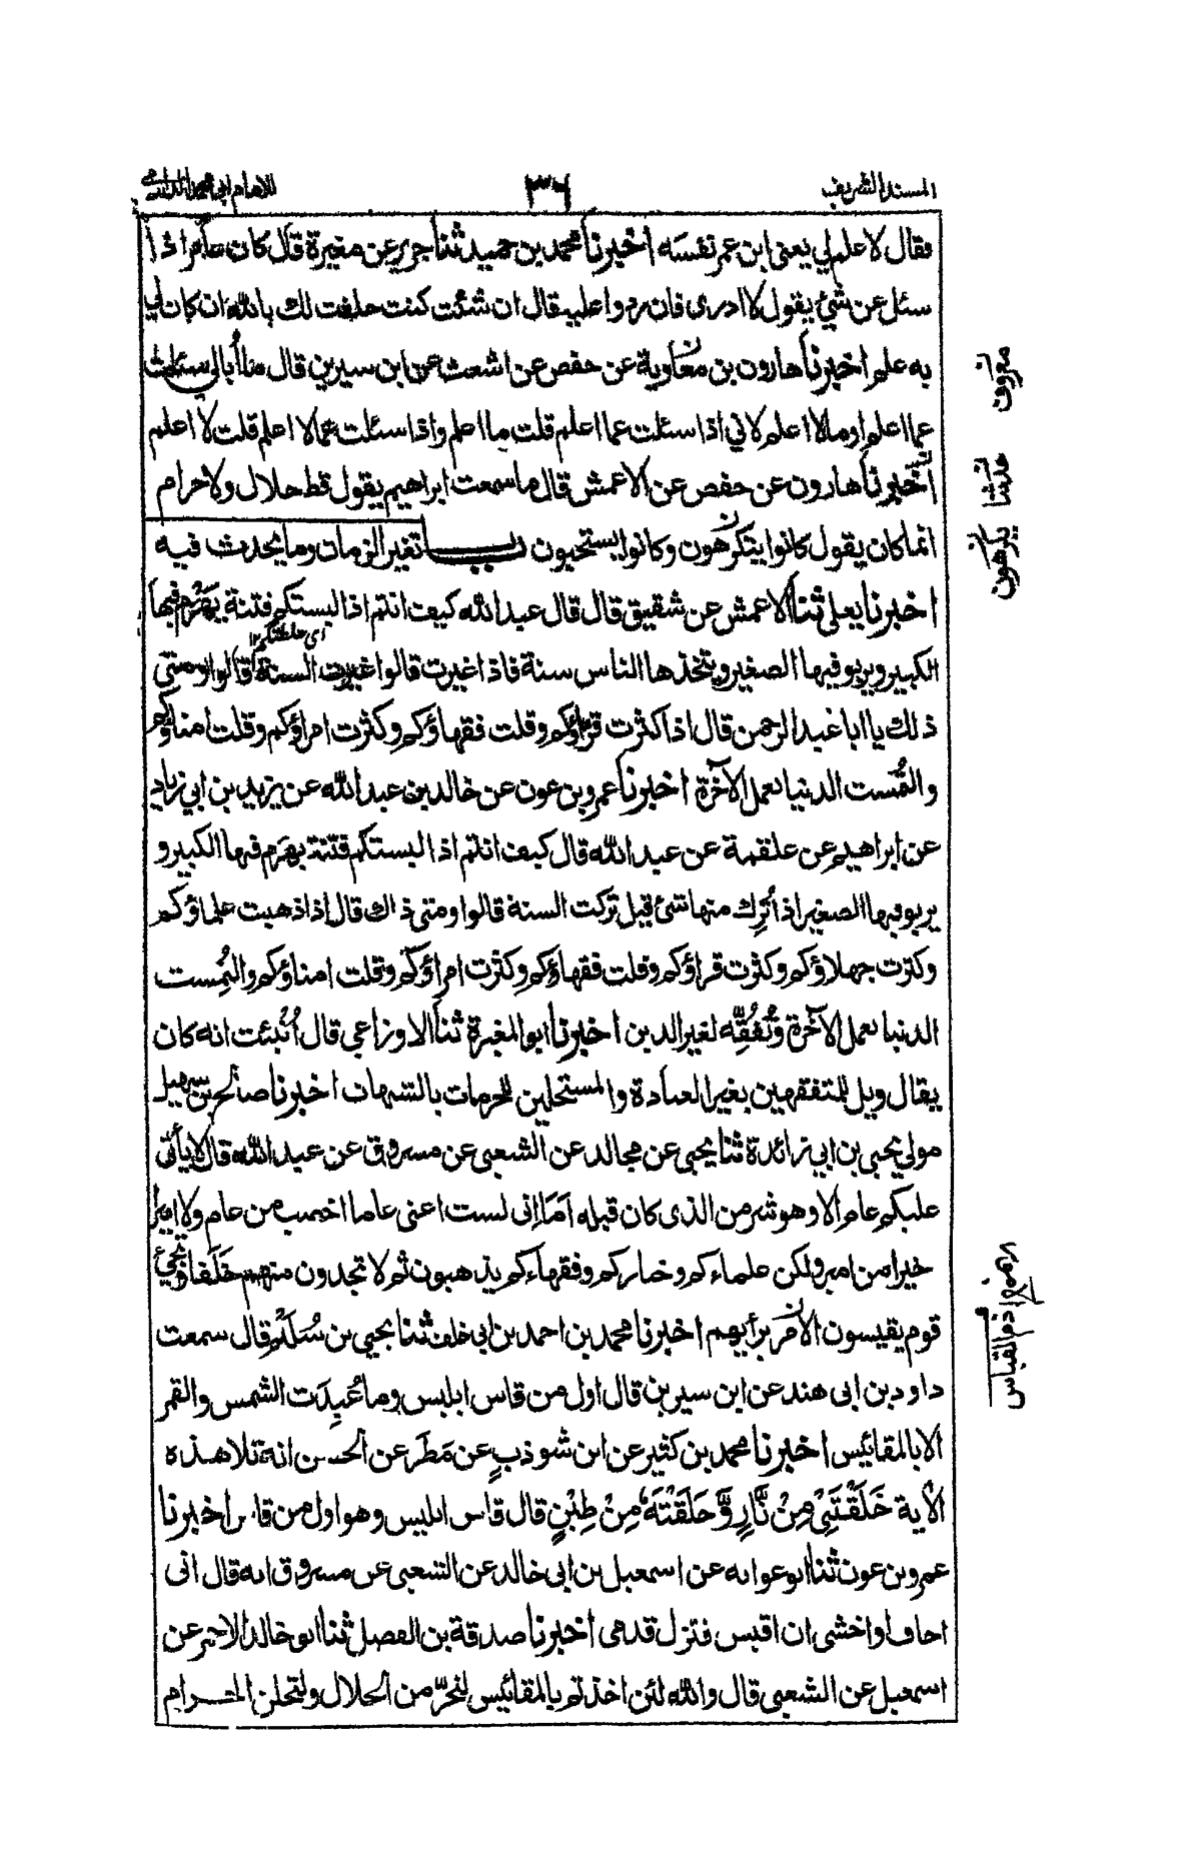 المسند الشريف
٣٦
للامام ابي محمد الدارمي
فقال لا علم لي يعني ابن عمر نفسَه اخبرنا محمد بن حميد ثنا جرير عن مغيرة قال كان عامر اذا
سئل عن شئ يقول لا ادرى فان ردوا عليه قال ان شئت كنت حلفت لك بالله ان كان لي
به علم اخبرنا هارون بن معاوية عن حفص عن اشعث عن ابن سيرين قال ما أُبالي سئلت
عما اعلم او ما لا اعلم لاني اذا سئلت عما اعلم قلت ما اعلم واذا سئلت عما لا اعلم قلت لا اعلم
اخبرنا هارون عن حفص عن الاعمش قال ما سمعت ابراهيم يقول قط حلال ولا حرام
انما كان يقول كانوا يتكرهون وكانوا يستحبون باب تغير الزمان وما يحدث فيه
اخبرنا يعلى ثنا الاعمش عن شقيق قال قال عبد الله كيف انتم اذا لبستكم فتنة يَهْرَم فيها
اى خلطتكم ١٢
الكبير ويربو فيها الصغير ويتخذها الناس سنة فاذا غيرت قالوا غيرت السنة قالوا ومتى
ذلك يا ابا عبد الرحمن قال اذا كثرت قراؤكم وقلت فقهاؤكم وكثرت امراؤكم وقلت امناؤكم
والتُمست الدنيا بعمل الآخرة اخبرنا عمرو بن عون عن خالد بن عبد الله عن يزيد بن ابي زياد
عن ابراهيم عن علقمة عن عبد الله قال كيف انتم اذا لبستكم فتنة يهرَم فيها الكبير و
يربو فيها الصغير اذا تُرِك منها شئ قيل تركت السنة قالوا ومتى ذاك قال اذا ذهبت علماؤكم
وكثرت جهلاؤكم وكثرت قراؤكم وقلت فقهاؤكم وكثرت امراؤكم وقلت امناؤكم والتُمِست
الدنيا بعمل الآخرة وتُفُقِّه لغير الدين اخبرنا ابو المغيرة ثنا الاوزاعي قال أُنْبئت انه كان
يقال ويل للمتفقهين بغير العبادة والمستحلين للحرمات بالشبهات اخبرنا صالح بن سهيل
مولى يحيى بن ابي زائدة ثنا يحيى عن مجالد عن الشعبى عن مسروق عن عبد الله قال لا يأتى
عليكم عام الا وهو شر من الذى كان قبله اَمَا انى لست اعنى عاما اخصب من عام ولا اميرا
خيرا من امير ولكن علماءكم وخياركم وفقهاءكم يذهبون ثم لا تجدون منهم خَلَفا ويجئ
قوم يقيسون الامر برأيهم اخبرنا محمد بن احمد بن ابى خلف ثنا يحيى بن سُلَيْم قال سمعت
داود بن ابى هند عن ابن سيرين قال اول من قاس ابليس وما عُبِدَت الشمس والقمر
الا بالمقائيس اخبرنا محمد بن كثير عن ابن شوذبٍ عن مَطَر عن الحسن انه تلا هذه
الآية خَلَقْتَنِىْ مِنْ نَّارٍ وَّ خَلَقْتَهٗ مِنْ طِيْنٍ قال قاس ابليس وهو اول من قاس اخبرنا
عمرو بن عون ثنا ابو عوانه عن اسمعيل بن ابى خالد عن الشعبى عن مسروق انه قال انى
اخاف او اخشى ان اقيس فتزل قدمى اخبرنا صدقة بن الفضل ثنا ابو خالد الاحمر عن
اسمعيل عن الشعبى قال والله لئن اخذتم بالمقائيس لتحرّمن الحلال ولتحلن الحرام
معروف
حدثنا
يكرهون
ذم القياس